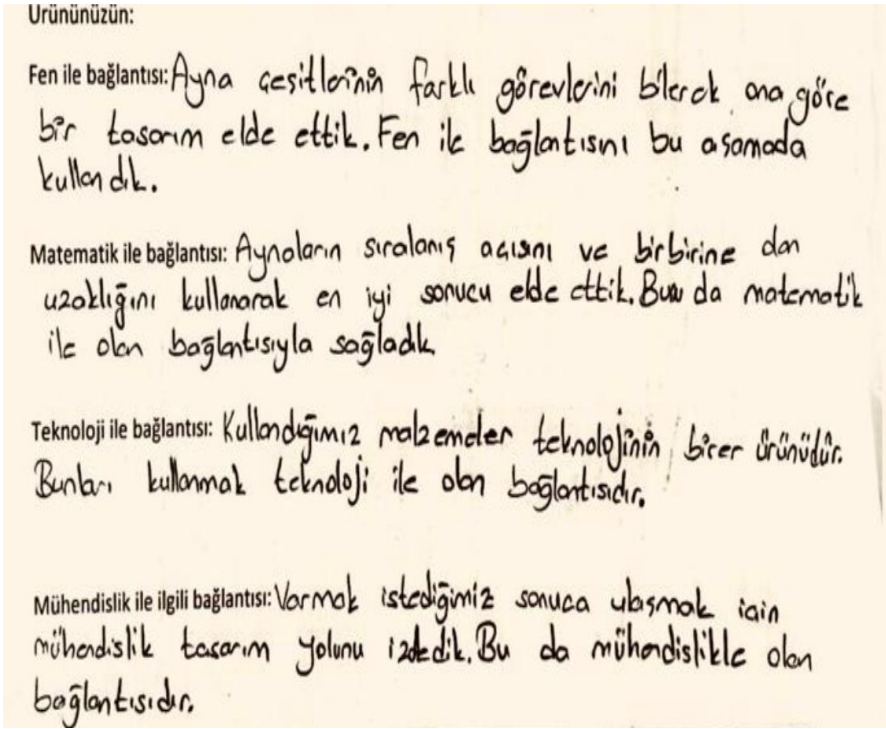 Ürününüzün:
Fen ile bağlantısı: Ayna çeşitlerinin farklı görevlerini bilerek ona göre
bir tasarım elde ettik. Fen ile bağlantısını bu aşamada
kullandık.
Matematik ile bağlantısı: Aynaların sıralanış açısını ve birbirine dan
uzaklığını kullanarak en iyi sonucu elde ettik. Bunu da matematik
ile olan bağlantısıyla sağladık
Teknoloji ile bağlantısı: Kullandığımız malzemeler teknolojinin birer ürünüdür.
Bunları kullanmak teknoloji ile olan bağlantısıdır.
Mühendislik ile ilgili bağlantısı: Varmak istediğimiz sonuca ulaşmak için
mühendislik tasarım yolunu izledik. Bu da mühendislikle olan
bağlantısıdır.